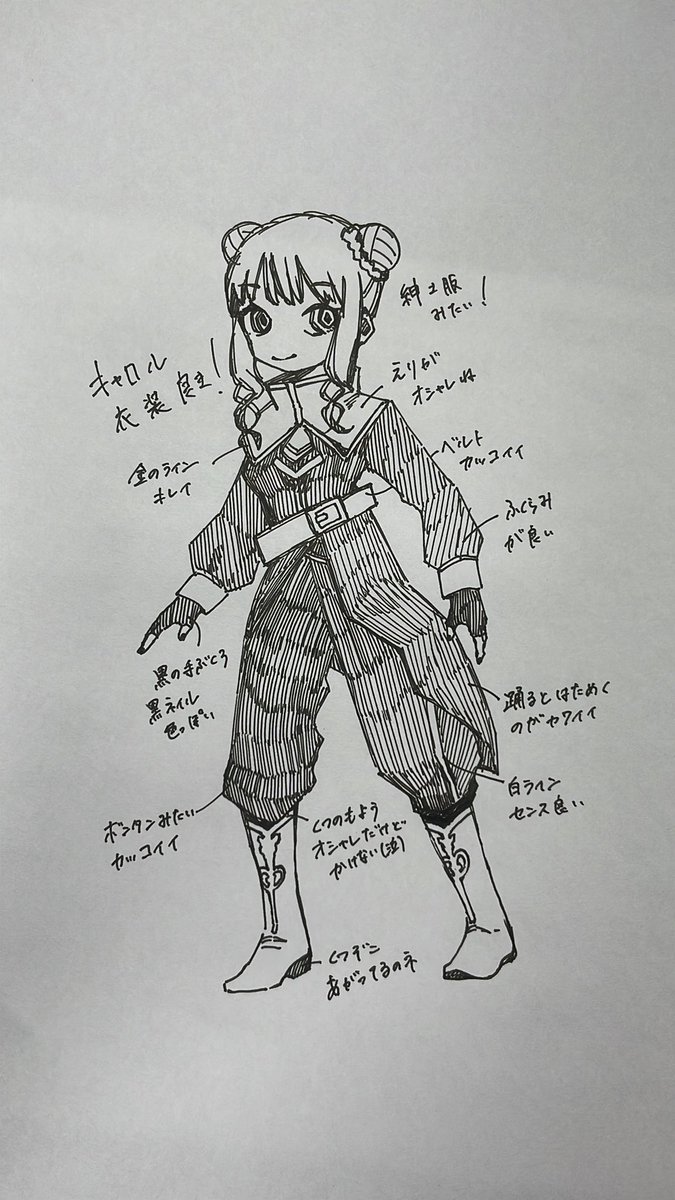 紳士服
みたい!
キャロル
衣装良き!
えりが
オシャレね
金のライン
キレイ
ベルト
カッコイイ
ふくらみ
が良い
黒の手ぶくろ
黒ネイル
色っぽい
踊るとはためく
のがカワイイ
白ライン
センス良い
ボンタンみたい
カッコイイ
くつのもよう
オシャレだけど
かけない(泣)
くつぞこ
あがってるのネ